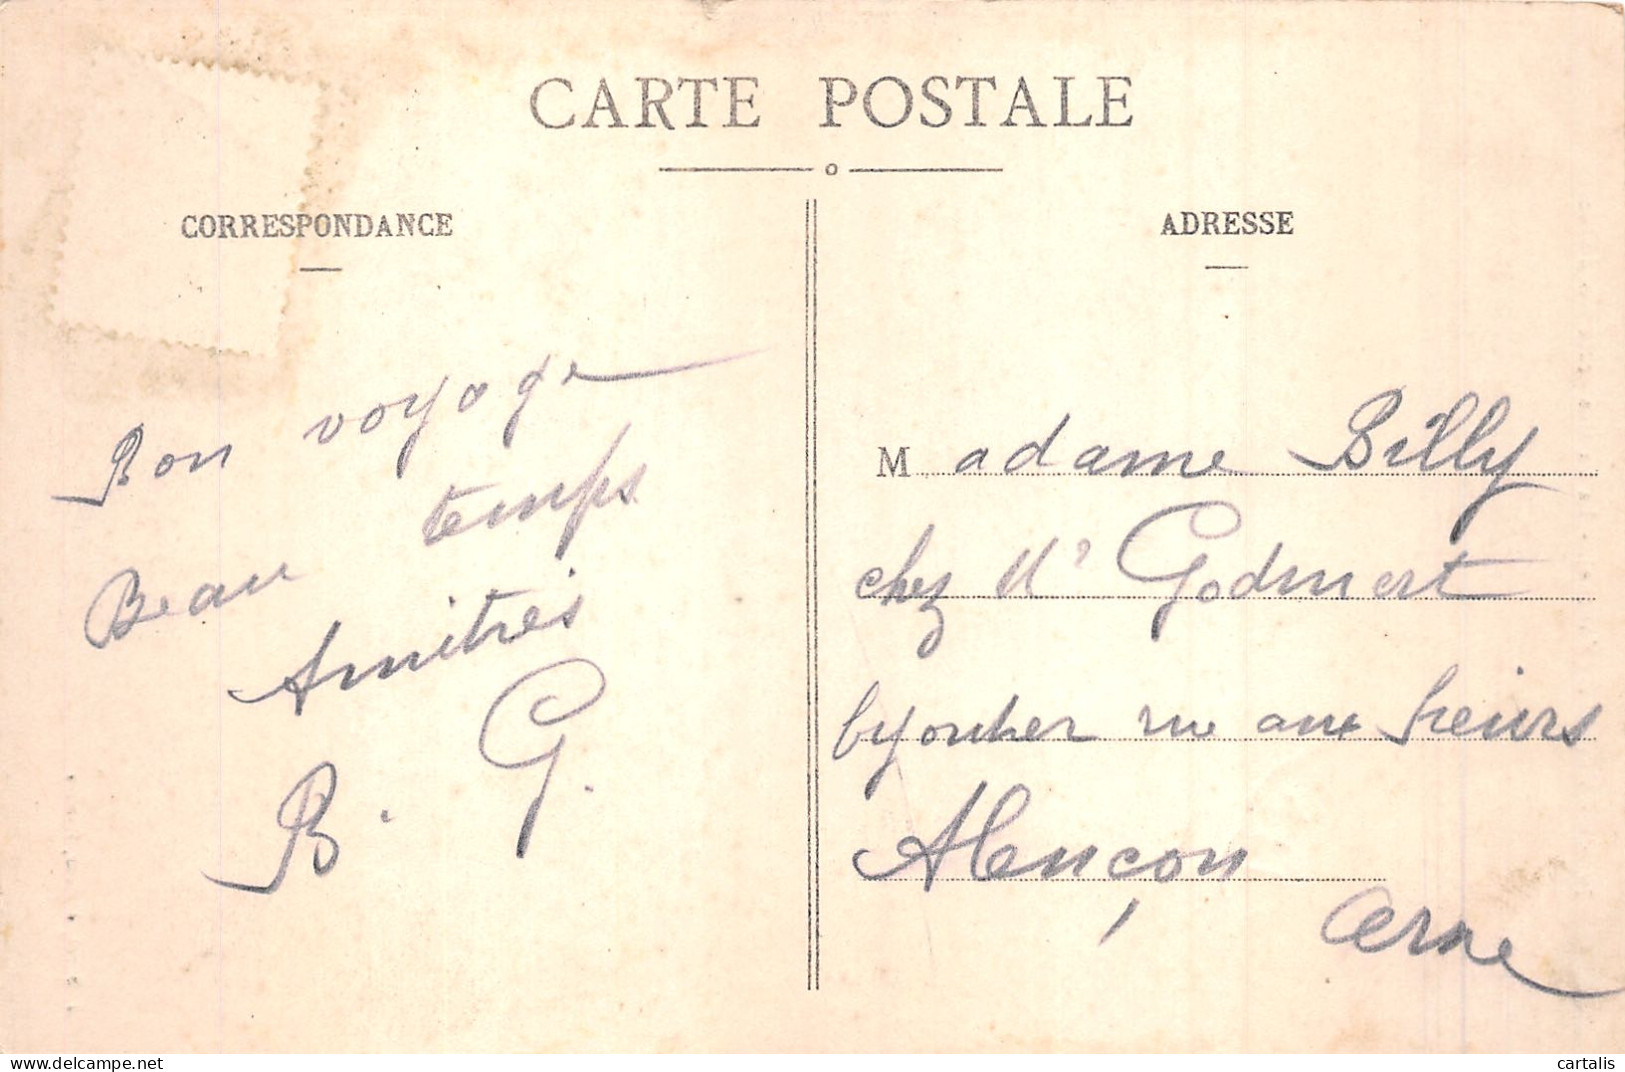 CARTE POSTALE
CORRESPONDANCE
ADRESSE
Bon voyage
Beau temps
Amitiés
B. G.
Madame Billy
chez Mr Godmert
byoutier rue aux Sieurs
Alençon
Orne
www.delcampe.net
cartalis